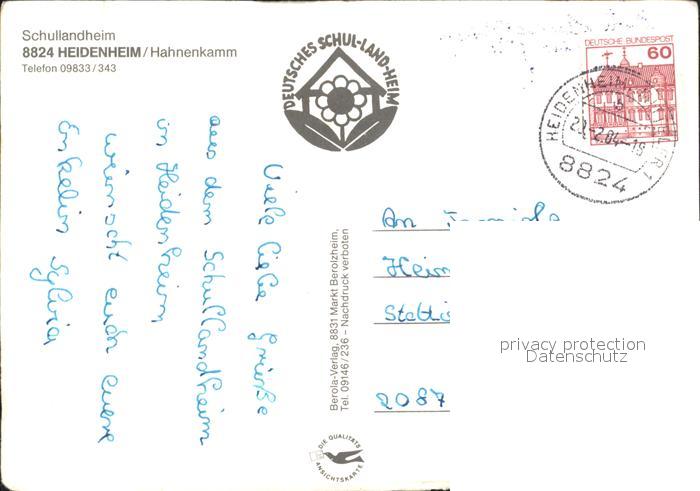 Schullandheim
8824 HEIDENHEIM / Hahnenkamm
Telefon 09833 / 343
DEUTSCHES SCHUL-LAND-HEIM
DEUTSCHE BUNDESPOST
60
HEIDENHEIM
8824
Viele liebe Grüße
aus dem Schullandheim
in Heidenheim
wünscht euch eure
Enkelin Sylvia
Berola-Verlag, 8831 Markt Berolzheim,
Tel. 09146 / 236 – Nachdruck verboten
An
2087
privacy protection
Datenschutz
DIE QUALITÄTS
ANSICHTSKARTE